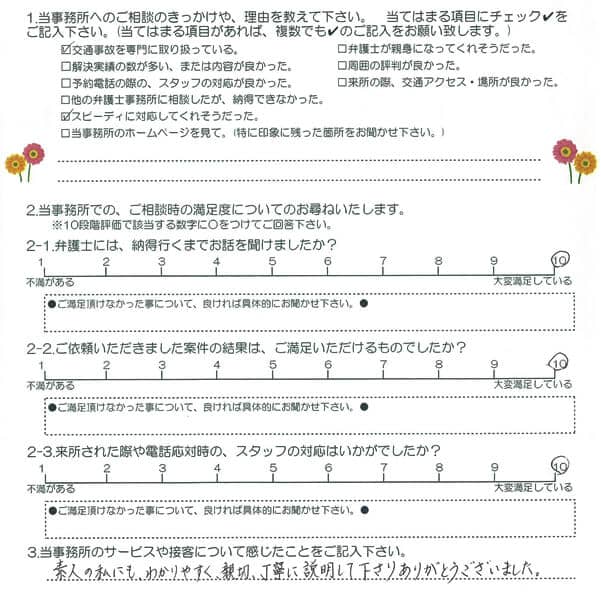 1.当事務所へのご相談のきっかけや、理由を教えて下さい。 当てはまる項目にチェック✔を
ご記入下さい。(当てはまる項目があれば、複数でも✔のご記入をお願い致します。)
☑交通事故を専門に取り扱っている。 □弁護士が親身になってくれそうだった。
□解決実績の数が多い、または内容が良かった。 □周囲の評判が良かった。
□予約電話の際の、スタッフの対応が良かった。 □来所の際、交通アクセス・場所が良かった。
□他の弁護士事務所に相談したが、納得できなかった。
☑スピーディに対応してくれそうだった。
□当事務所のホームページを見て。(特に印象に残った箇所をお聞かせ下さい。)
2.当事務所での、ご相談時の満足度についてのお尋ねいたします。
※10段階評価で該当する数字に○をつけてご回答下さい。
2-1.弁護士には、納得行くまでお話を聞けましたか?
1 2 3 4 5 6 7 8 9 10
不満がある 大変満足している
●ご満足頂けなかった事について、良ければ具体的にお聞かせ下さい。●
2-2.ご依頼いただきました案件の結果は、ご満足いただけるものでしたか?
1 2 3 4 5 6 7 8 9 10
不満がある 大変満足している
●ご満足頂けなかった事について、良ければ具体的にお聞かせ下さい。●
2-3.来所された際や電話応対時の、スタッフの対応はいかがでしたか?
1 2 3 4 5 6 7 8 9 10
不満がある 大変満足している
●ご満足頂けなかった事について、良ければ具体的にお聞かせ下さい。●
3.当事務所のサービスや接客について感じたことをご記入下さい。
素人の私にも、わかりやすく、親切、丁寧に説明して下さりありがとうございました。